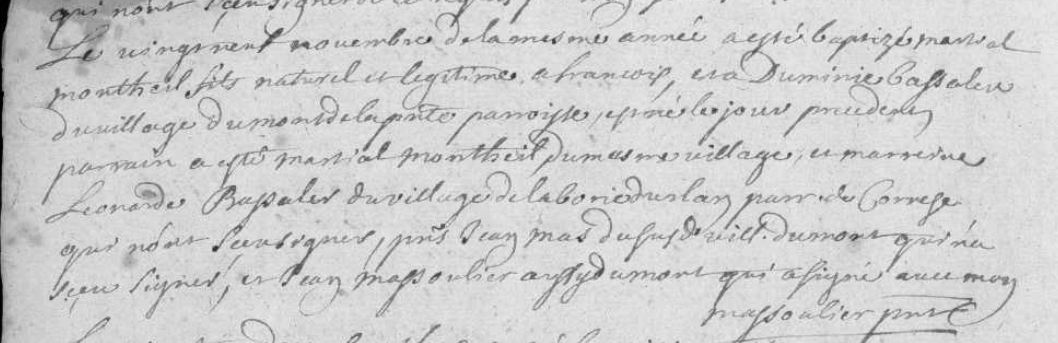 qui n'ont sceu signer de ce
Le vingt neuf novembre de la mesme année a esté baptizé martial
montheil fils naturel et legitime a francois, et a Duminie bassaler
du village du mont de la pnte parroisse, est né le jour precedent
parrain a esté martial montheil, du mesme village, et marreine
Leonarde Bassaler du village de la borie du parr. de Correze
qui n'ont sceu signer, pnts Jean mas du susd. vill. du mont qui n'a
sceu signer, et Jean massoulier aussy du mont qui a signé avec moy
massoulier pnt